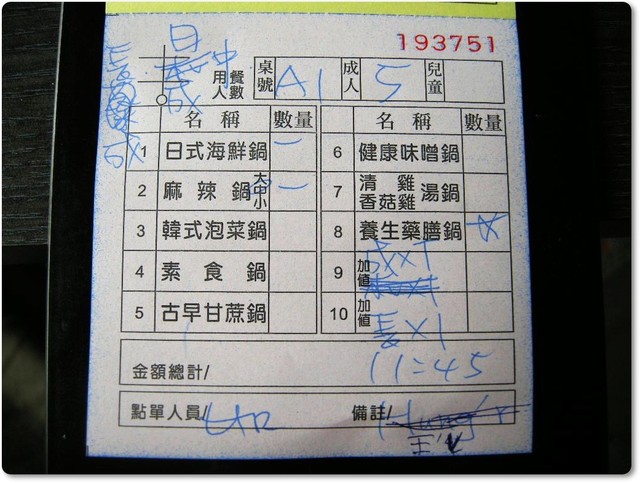 193751
用餐人數 桌號 A1 成人 5 兒童
名稱 數量 名稱 數量
1 日式海鮮鍋 一 6 健康味噌鍋
2 麻辣鍋 大中小 一 7 清雞香菇雞湯鍋
3 韓式泡菜鍋 8 養生藥膳鍋
4 素食鍋 9 加值
5 古早甘蔗鍋 10 加值
金額總計/ 11:45
點單人員/ 備註/